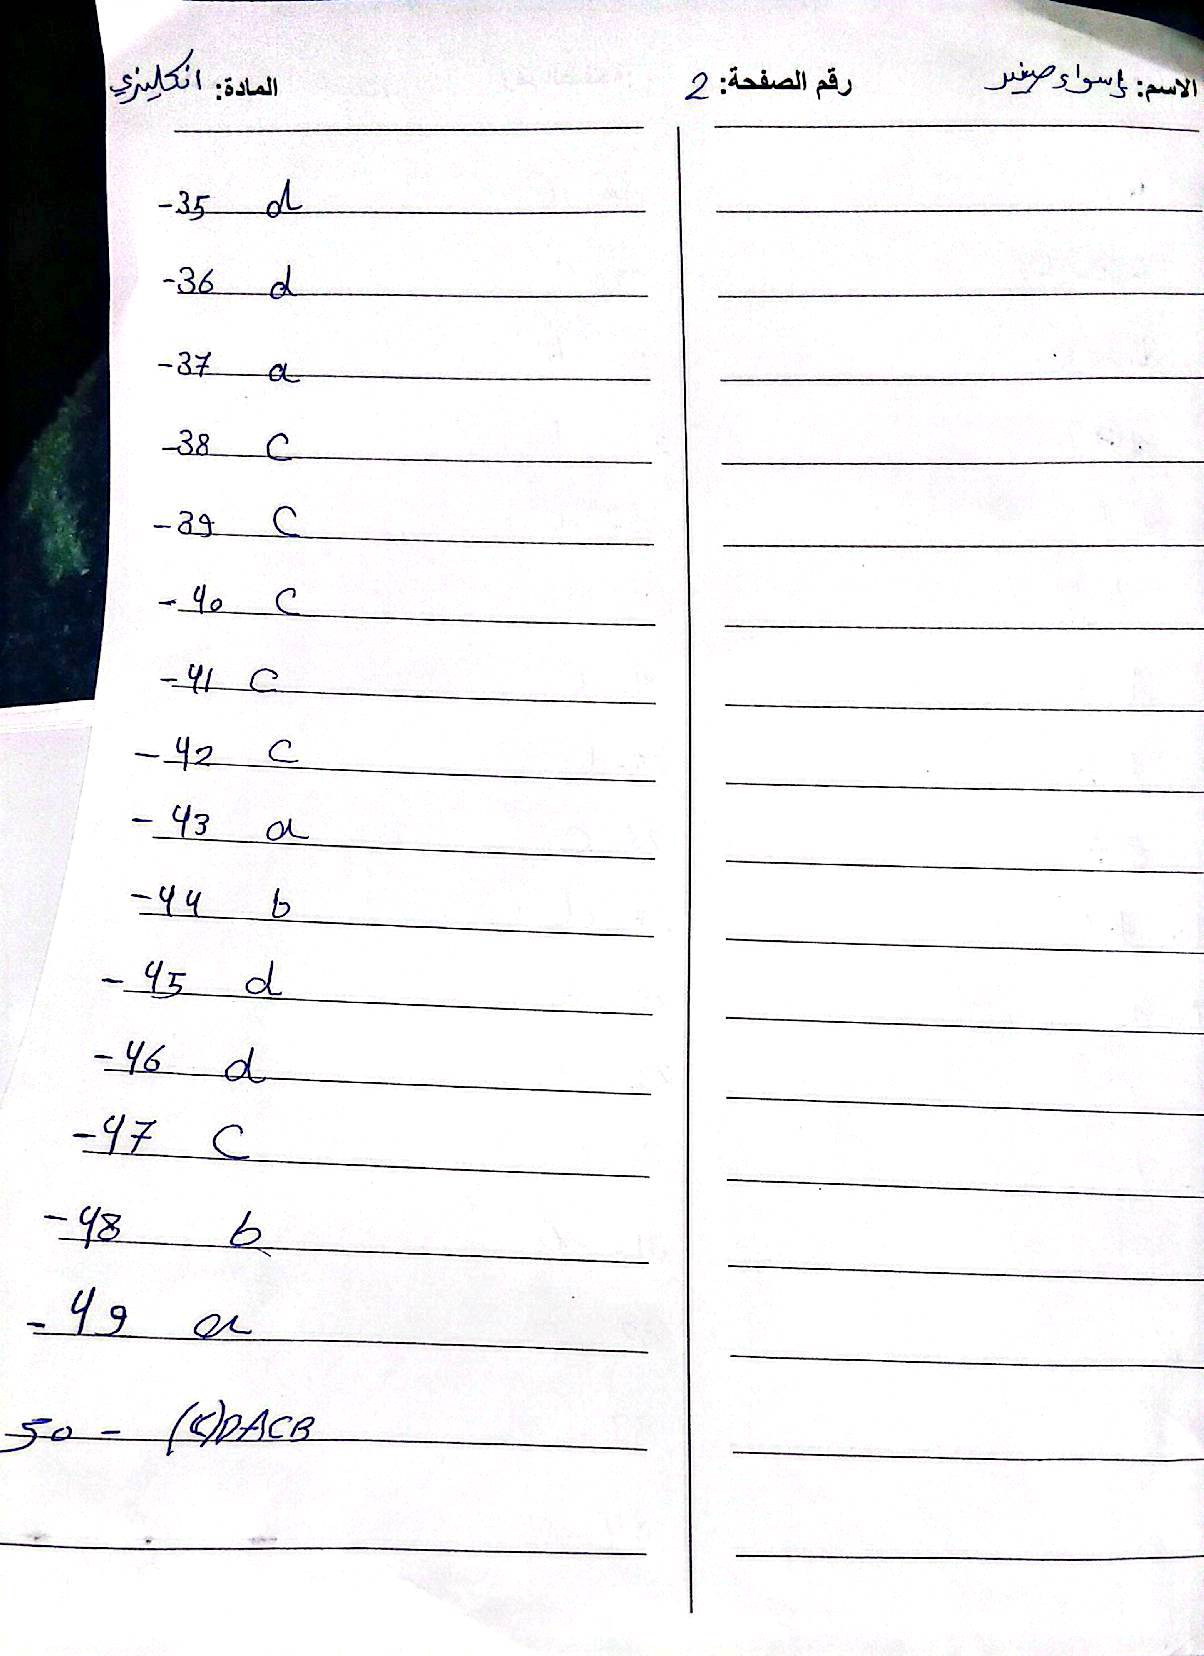 الاسم: إسراء صغير رقم الصفحة: 2 المادة: انكليزي
-35 d
-36 d
-37 a
-38 C
-39 C
-40 C
-41 C
-42 C
-43 a
-44 b
-45 d
-46 d
-47 C
-48 b
-49 a
50 - (c) DACB